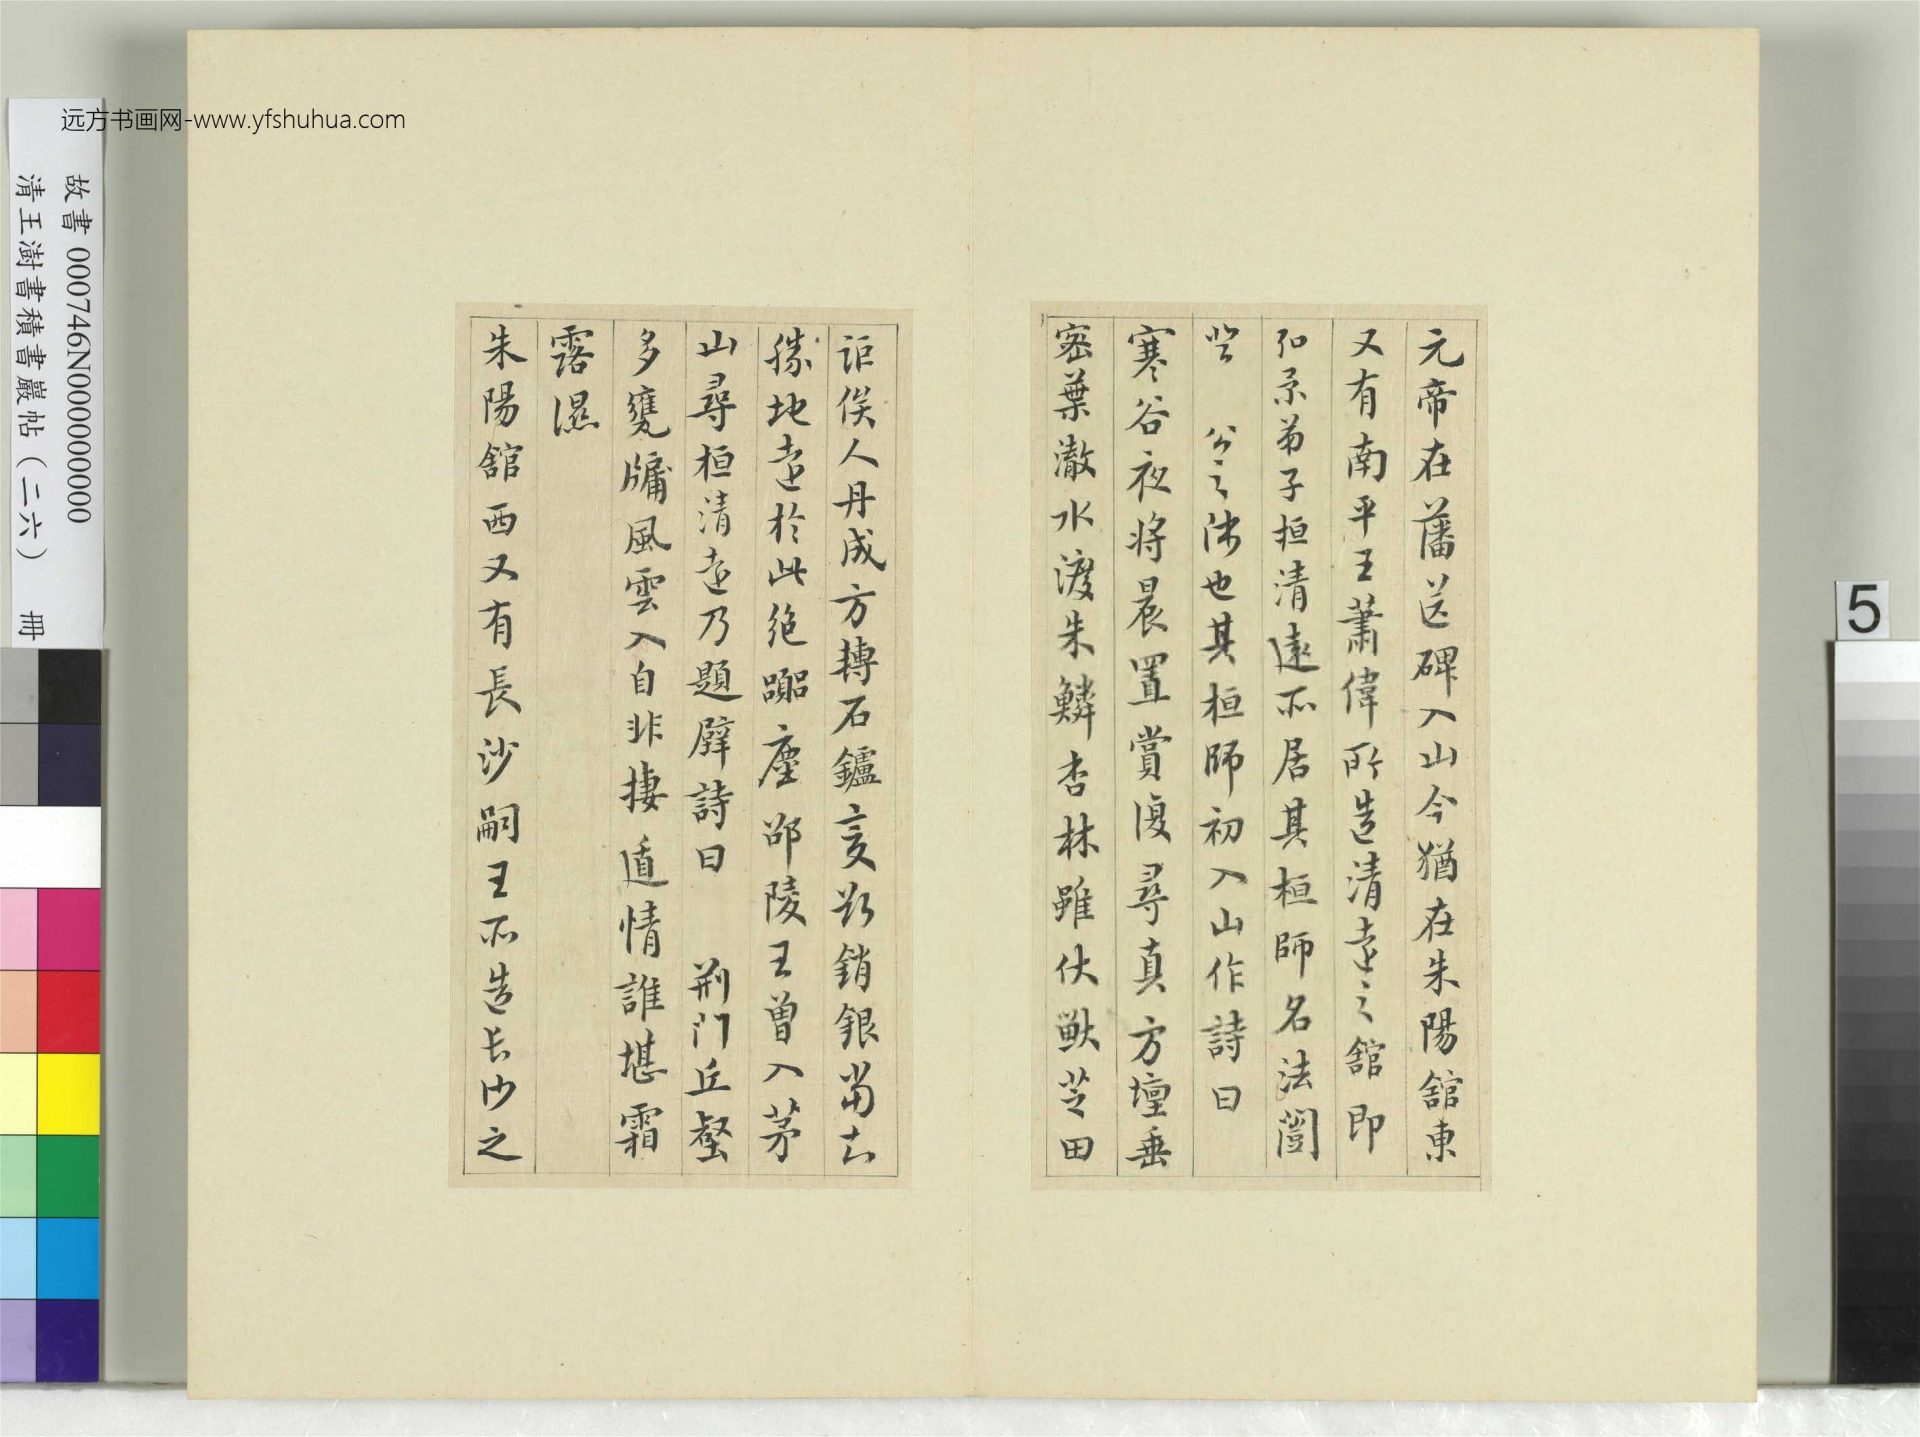 远方书画网-www.yfshuhua.com
故書000746N000000000
清王澍書積書巖帖（二六） 冊
5
元帝在藩送碑入山今猶在朱陽舘東
又有南平王蕭偉所造清遠之舘即
弘景弟子桓清遠所居其桓師名法闓
登 公之師也其桓師初入山作詩曰
寒谷夜將晨置賞復尋真方壇垂
密葉澈水渡朱鱗杏林雖伏獸芝田
詎俟人丹成方轉石鑪變欲銷銀當知
勝地遠於此絶囂塵邵陵王曾入茅
山尋桓清遠乃題壁詩曰 荆門丘壑
多甕牖風雲入自非棲遁情誰堪霜
露濕
朱陽舘西又有長沙嗣王所造長沙之